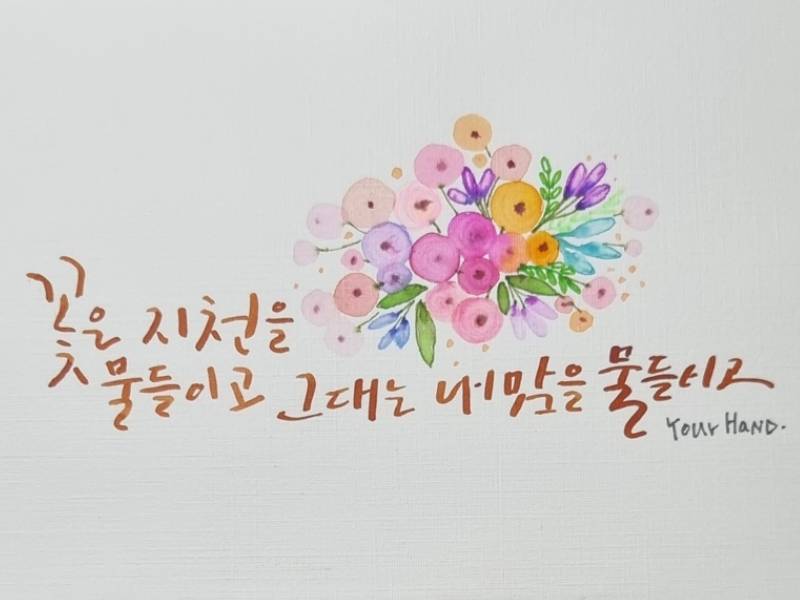 꽃은 지천을
물들이고 그대는 내 맘을 물들이고
Your Hand.